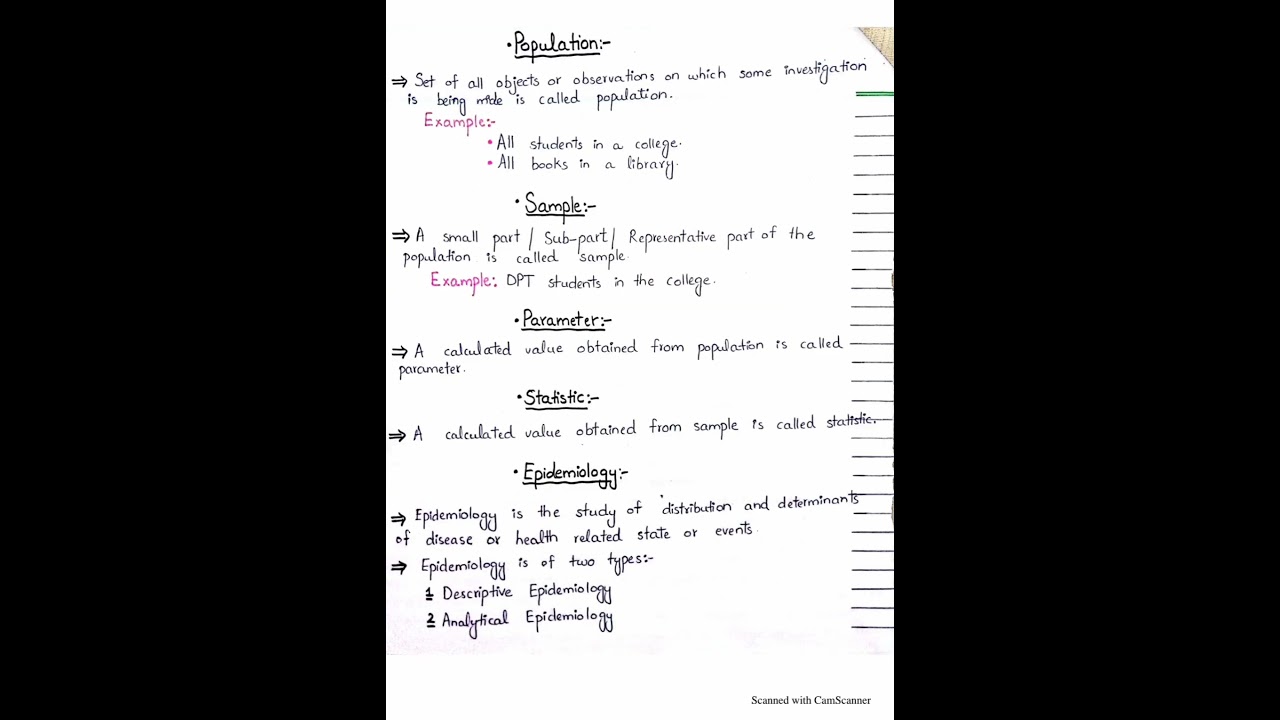 • Population:-
⇒ Set of all objects or observations on which some investigation
is being made is called population.
Example:-
• All students in a college.
• All books in a library.
• Sample:-
⇒ A small part / Sub-part / Representative part of the
population is called sample.
Example: DPT students in the college.
• Parameter:-
⇒ A calculated value obtained from population is called
parameter.
• Statistic:-
⇒ A calculated value obtained from sample is called statistic.
• Epidemiology:-
⇒ Epidemiology is the study of distribution and determinants
of disease or health related state or events.
⇒ Epidemiology is of two types:-
1 Descriptive Epidemiology
2 Analytical Epidemiology
Scanned with CamScanner